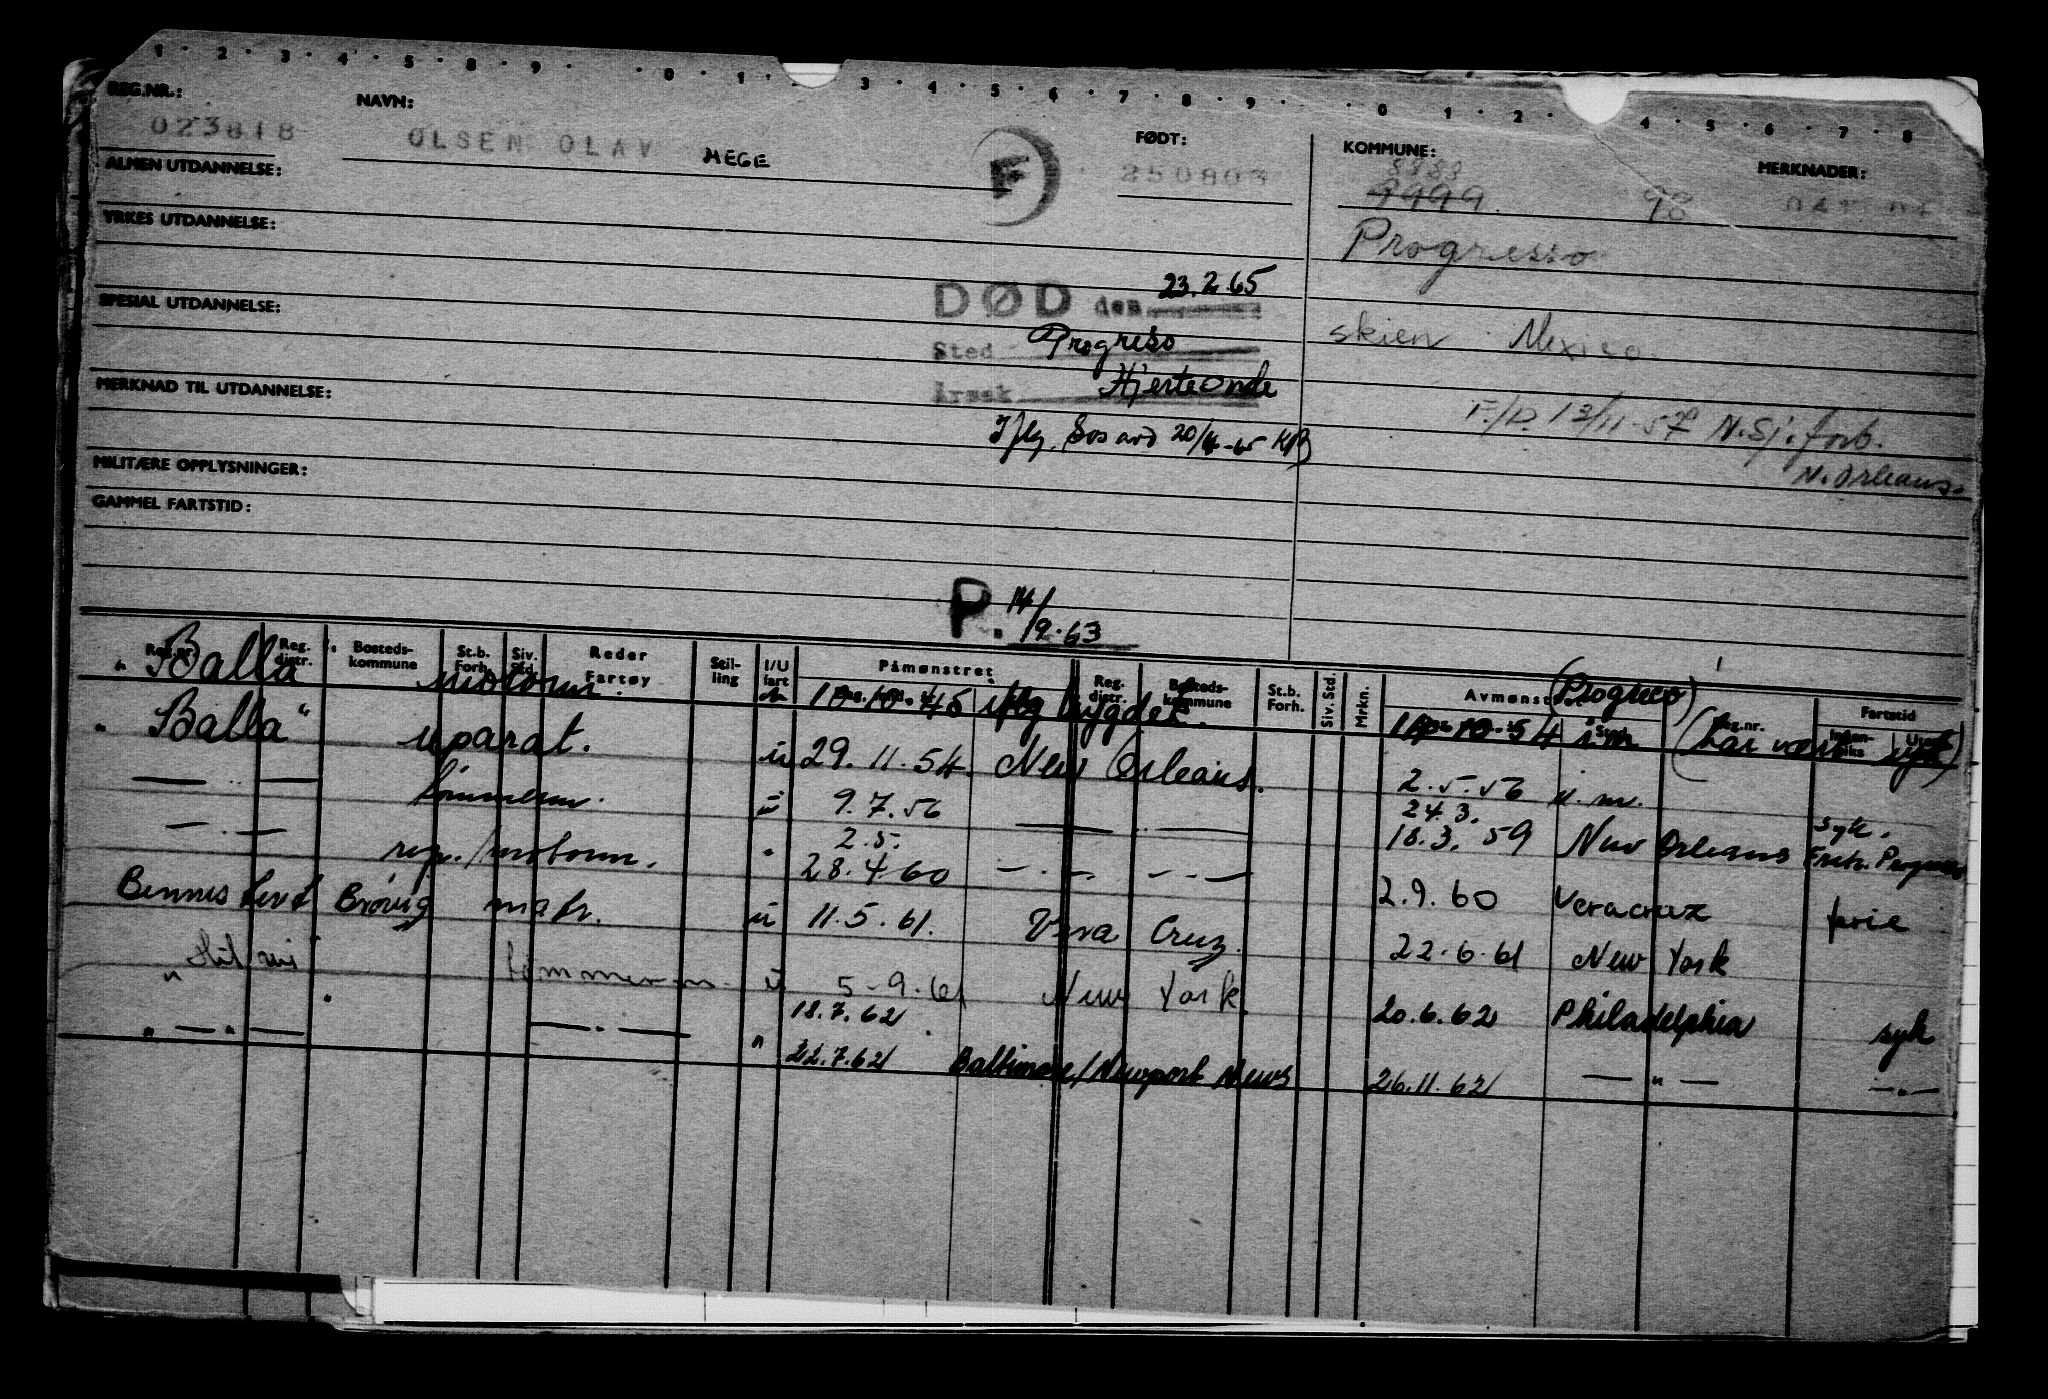 1 · 2 · 3 · 4 · 5 · 8 · 9 · · 0 · 1 · 3 · 4 · 5 · 6 · 7 · 8 · 9 · · 0 · 1 · 2 · 4 · 5 · 6 · 7 · 8
REG.NR.: NAVN: FØDT: KOMMUNE: MERKNADER:
023818 OLSEN OLAV HEGE F 250803 8883
9999. 98
ALMEN UTDANNELSE:
YRKES UTDANNELSE: Progresso
DØD den 23.2.65
SPESIAL UTDANNELSE: Sted Progreso skien Mexico
Årsak Hjerteonde
MERKNAD TIL UTDANNELSE: F./P. 13/11-57 N.Sj.forb.
Iflg. Sosavd 20/4-65 KB N. Orleans.
MILITÆRE OPPLYSNINGER:
GAMMEL FARTSTID:
P. 14/9.63
Reg.nr. Reg. distr. Bosteds-kommune St.b. Forh. Siv. Std. Reder Fartøy Stilling I/U fart Påmønstret Reg. distr. Bosteds-kommune St.b. Forh. Siv. Std. Mrkn. Avmønst Reg.nr. Fartstid
"Balla" motorm. 10.10.45 iflg bygdet. 10.10.54 i.m (Progreso) (har vært syk)
"Balla" uparat. u 29.11.54. New Orleans. 2.5.56 i.m.
— " — tømmerm. u 9.7.56 — " — 24.3.
18.3.59 New Orleans syk.
— " — rep./motorm. " 2.5.
28.4.60 — " — — " — 2.9.60 Veracruz ferie
Bennis Brøvig matr. u 11.5.61. Vera Cruz. 22.6.61 New York
tømmerm. u 5-9.61 New York. 20.6.62 Philadelphia syk
" — " — — " — " 18.7.62.
22.7.62 Baltimore/Newport News 26.11.62 — " — — " —